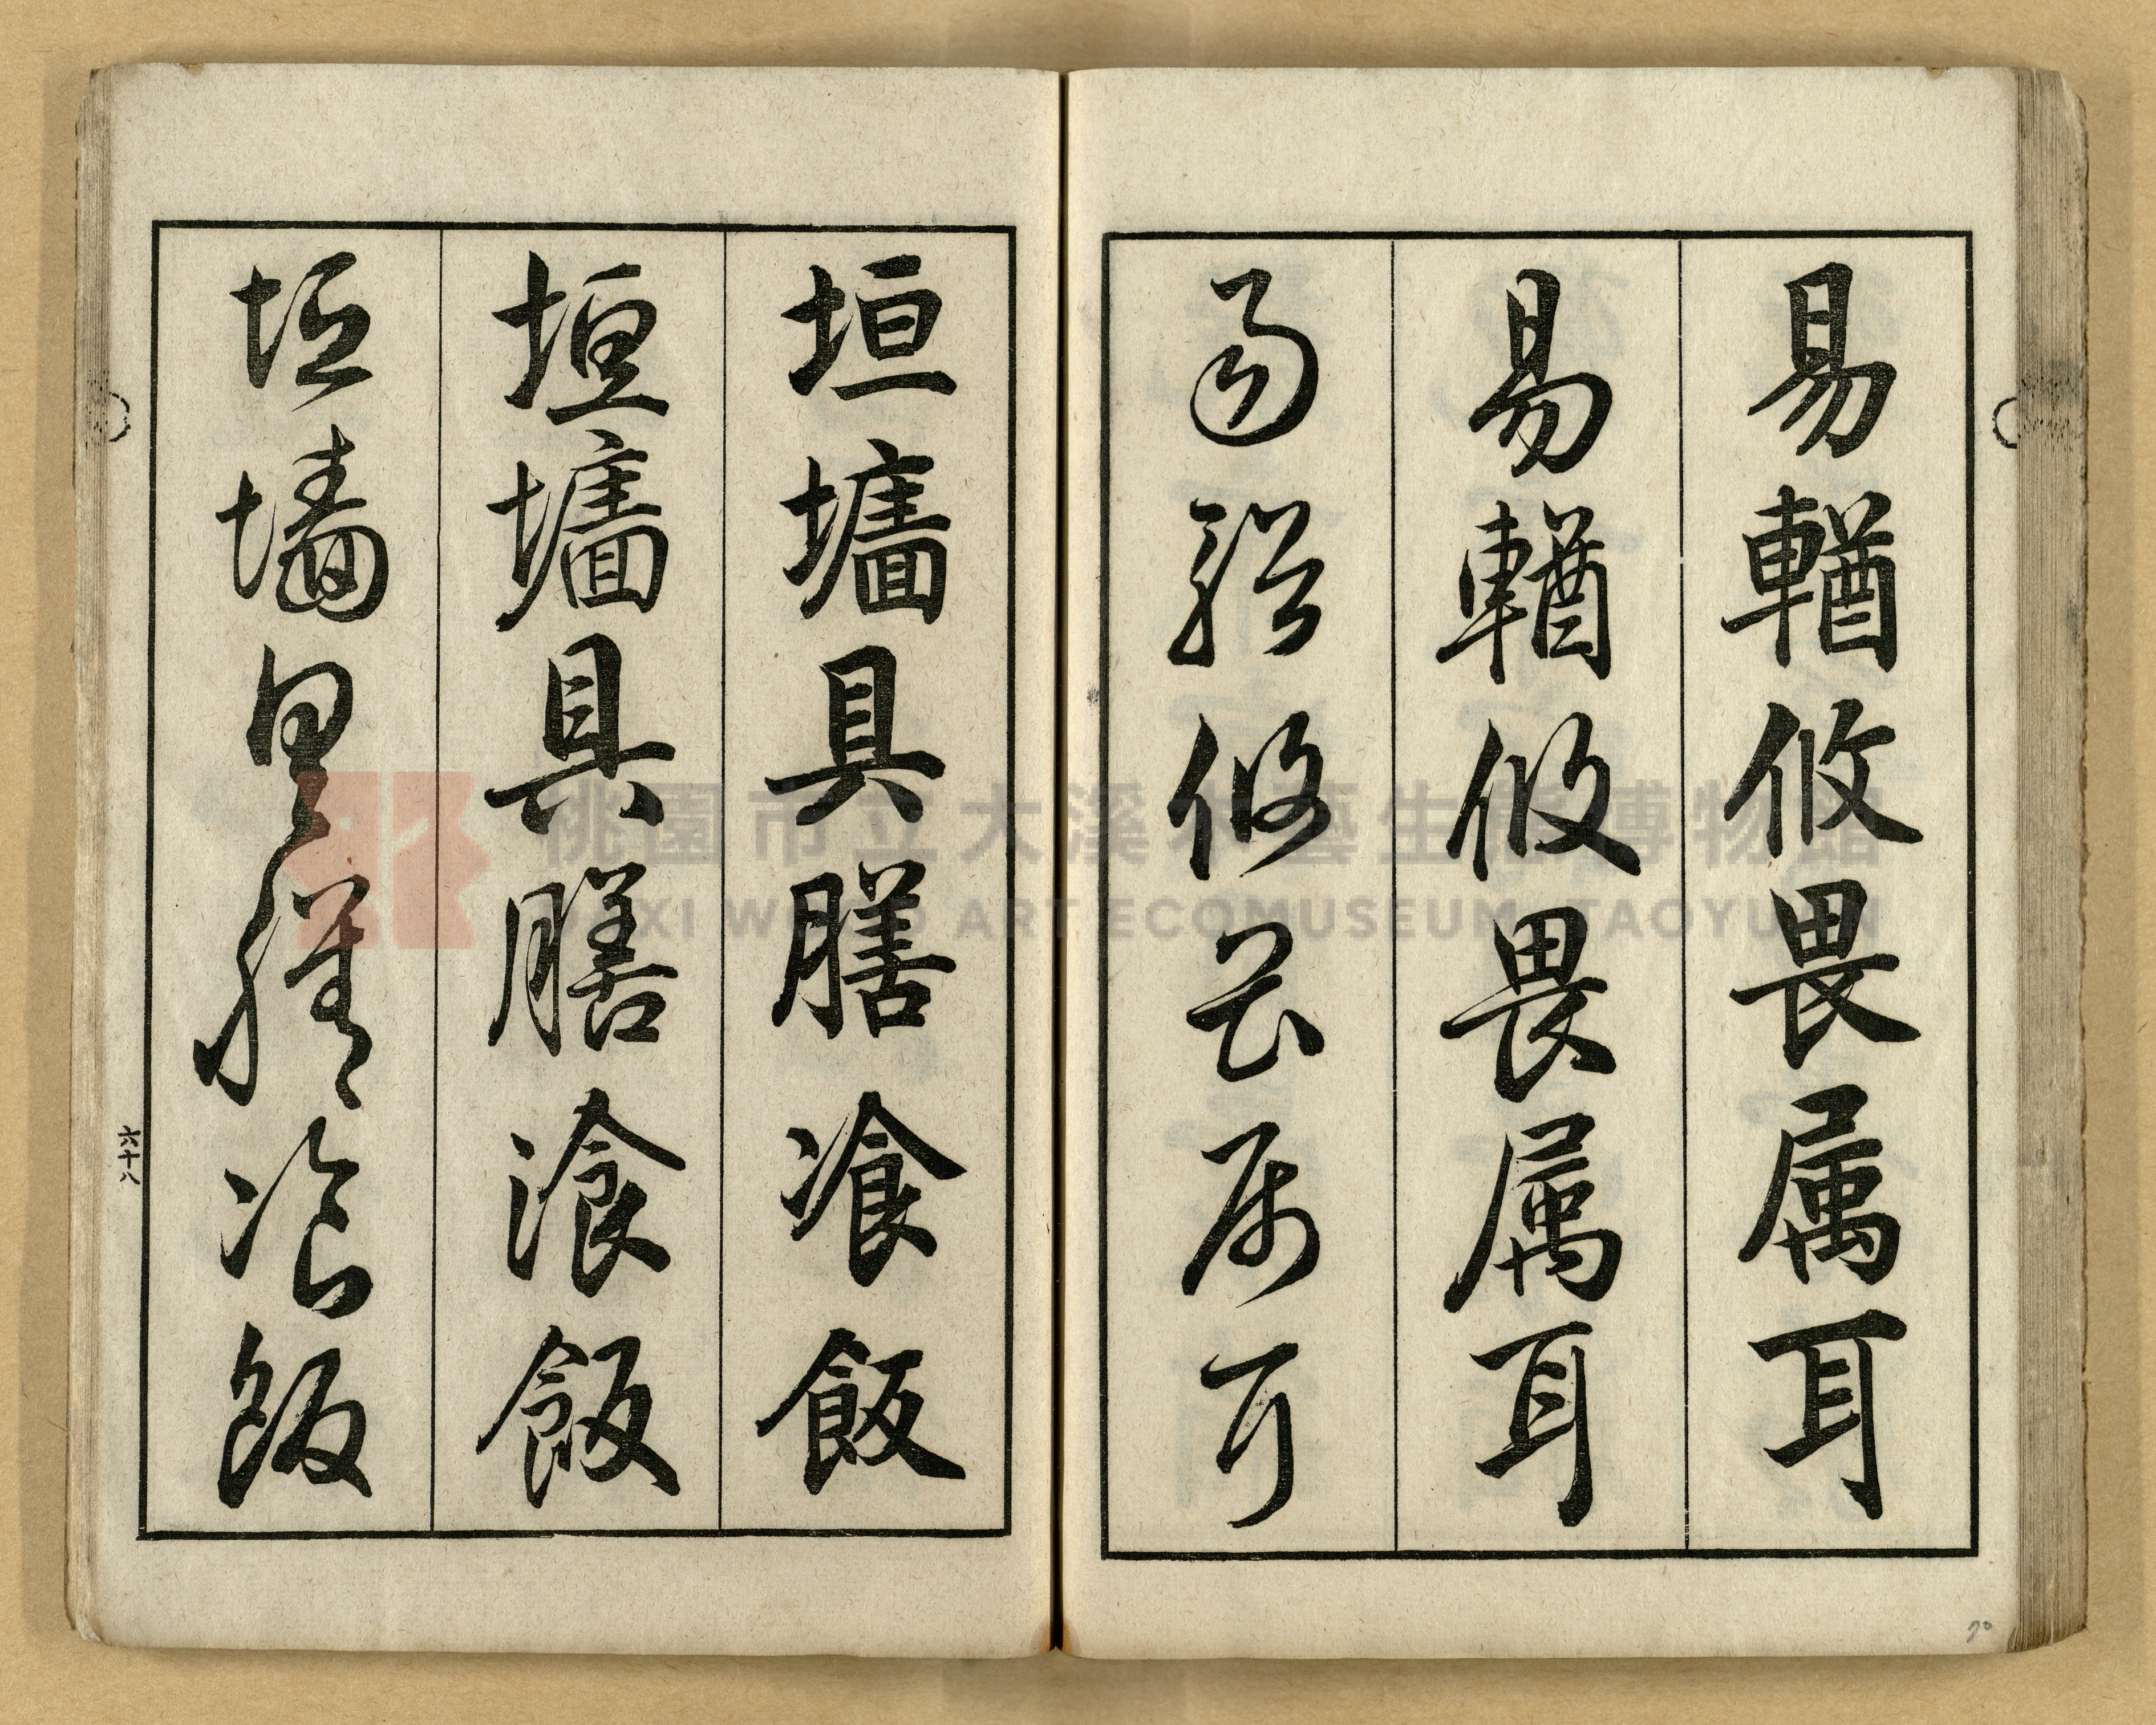 易輶攸畏属耳
易輶攸畏属耳
易輶攸畏属耳
垣墻具膳飡飯
垣墻具膳飡飯
垣墻具膳飡飯
六十八
桃園市立大溪木藝生態博物館
DAXI WOOD ART ECOMUSEUM, TAOYUAN
70